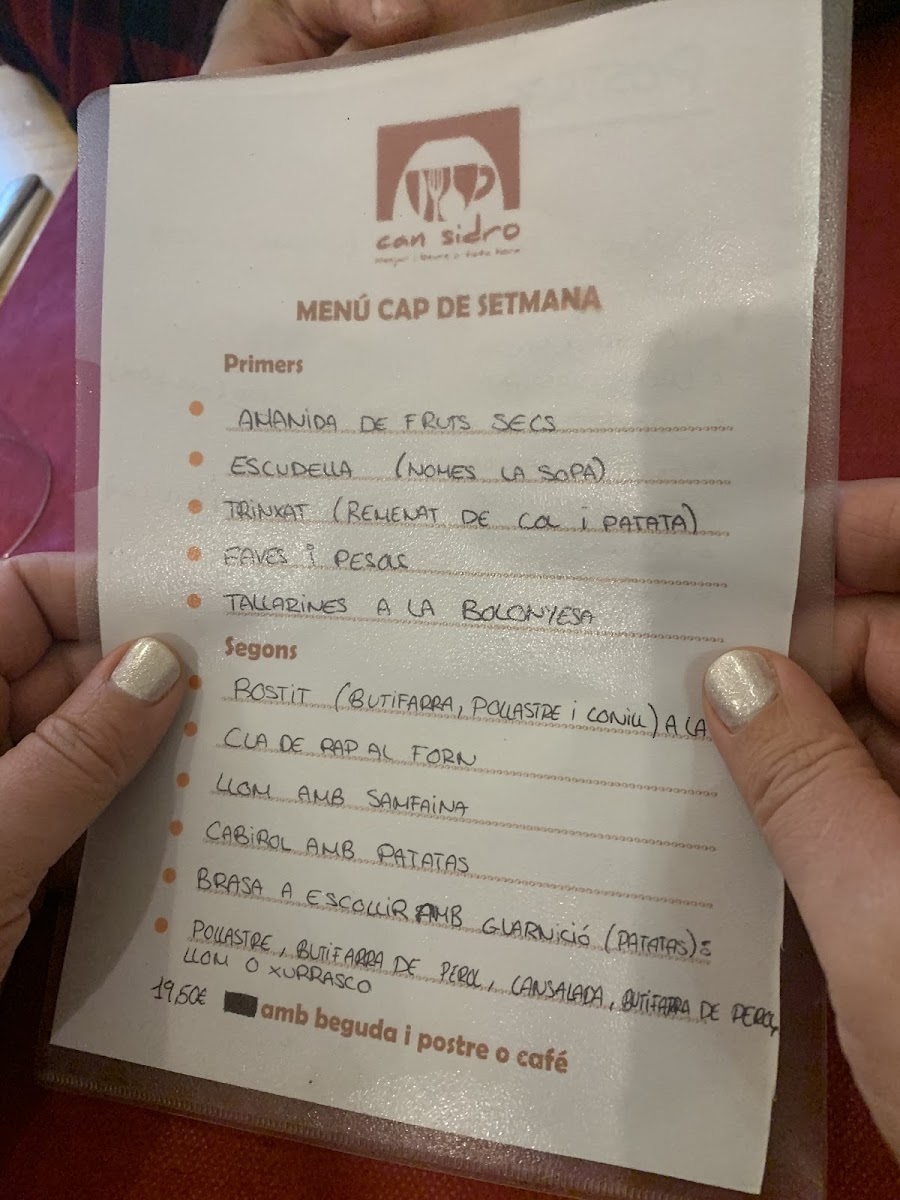 can sidro
MENÚ CAP DE SETMANA
Primers
AMANIDA DE FRUTS SECS
ESCUDELLA (NOMES LA SOPA)
TRINXAT (REMENAT DE COL i PATATA)
FAVES i PESOLS
TALLARINES A LA BOLONYESA
Segons
ROSTIT (BUTIFARRA, POLLASTRE i CONILL) A LA
CUA DE RAP AL FORN
LLOM AMB SAMFAINA
CABIROL AMB PATATAS
BRASA A ESCOLLIR AMB GUARNICIÓ (PATATAS):
POLLASTRE, BUTIFARRA DE PEROL, CANSALADA, BUTIFARRA DE PEROL,
LLOM O XURRASCO
19,50€ amb beguda i postre o café